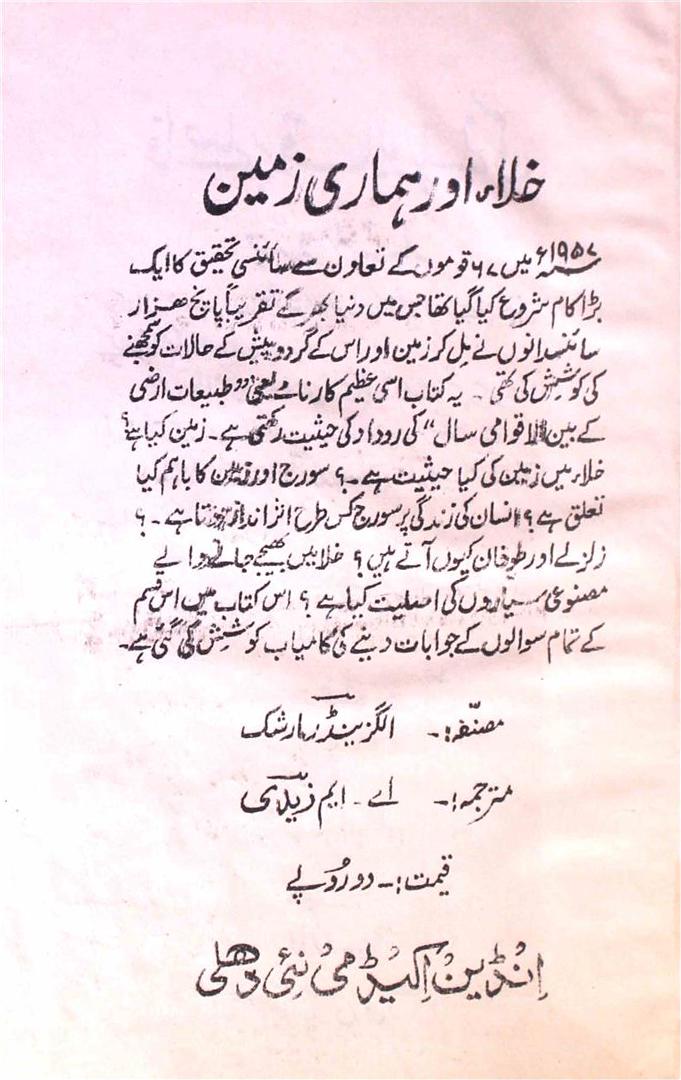 خلاء اور ہماری زمین
۱۹۵۷ء میں ۶۷ قوموں کے تعاون سے سائنسی تحقیق کا ایک
بڑا کام شروع کیا گیا تھا جس میں دنیا بھر کے تقریباً پانچ ہزار
سائنسدانوں نے مِل کر زمین اور اس کے گرد و پیش کے حالات کو سمجھنے
کی کوشش کی تھی ۔ یہ کتاب اسی عظیم کارنامے یعنی ”طبیعات ارضی
کے بین الاقوامی سال“ کی روداد کی حیثیت رکھتی ہے۔ زمین کیا ہے؟
خلاء میں زمین کی کیا حیثیت ہے۔؟ سورج اور زمین کا باہم کیا
تعلق ہے؟ انسان کی زندگی پر سورج کس طرح اثر انداز ہوتا ہے۔؟
زلزلے اور طوفان کیوں آتے ہیں؟ خلا میں بھیجے جانے والے
مصنوعی سیاروں کی اصلیت کیا ہے؟ اس کتاب میں اس قسم
کے تمام سوالوں کے جوابات دینے کی کامیاب کوشش کی گئی ہے۔
مصنّفہ:۔ الگزینڈر مارشک
مترجمہ:۔ اے۔ ایم زیدی
قیمت:۔ دو روپے
انڈین اکیڈمی نئی دھلی